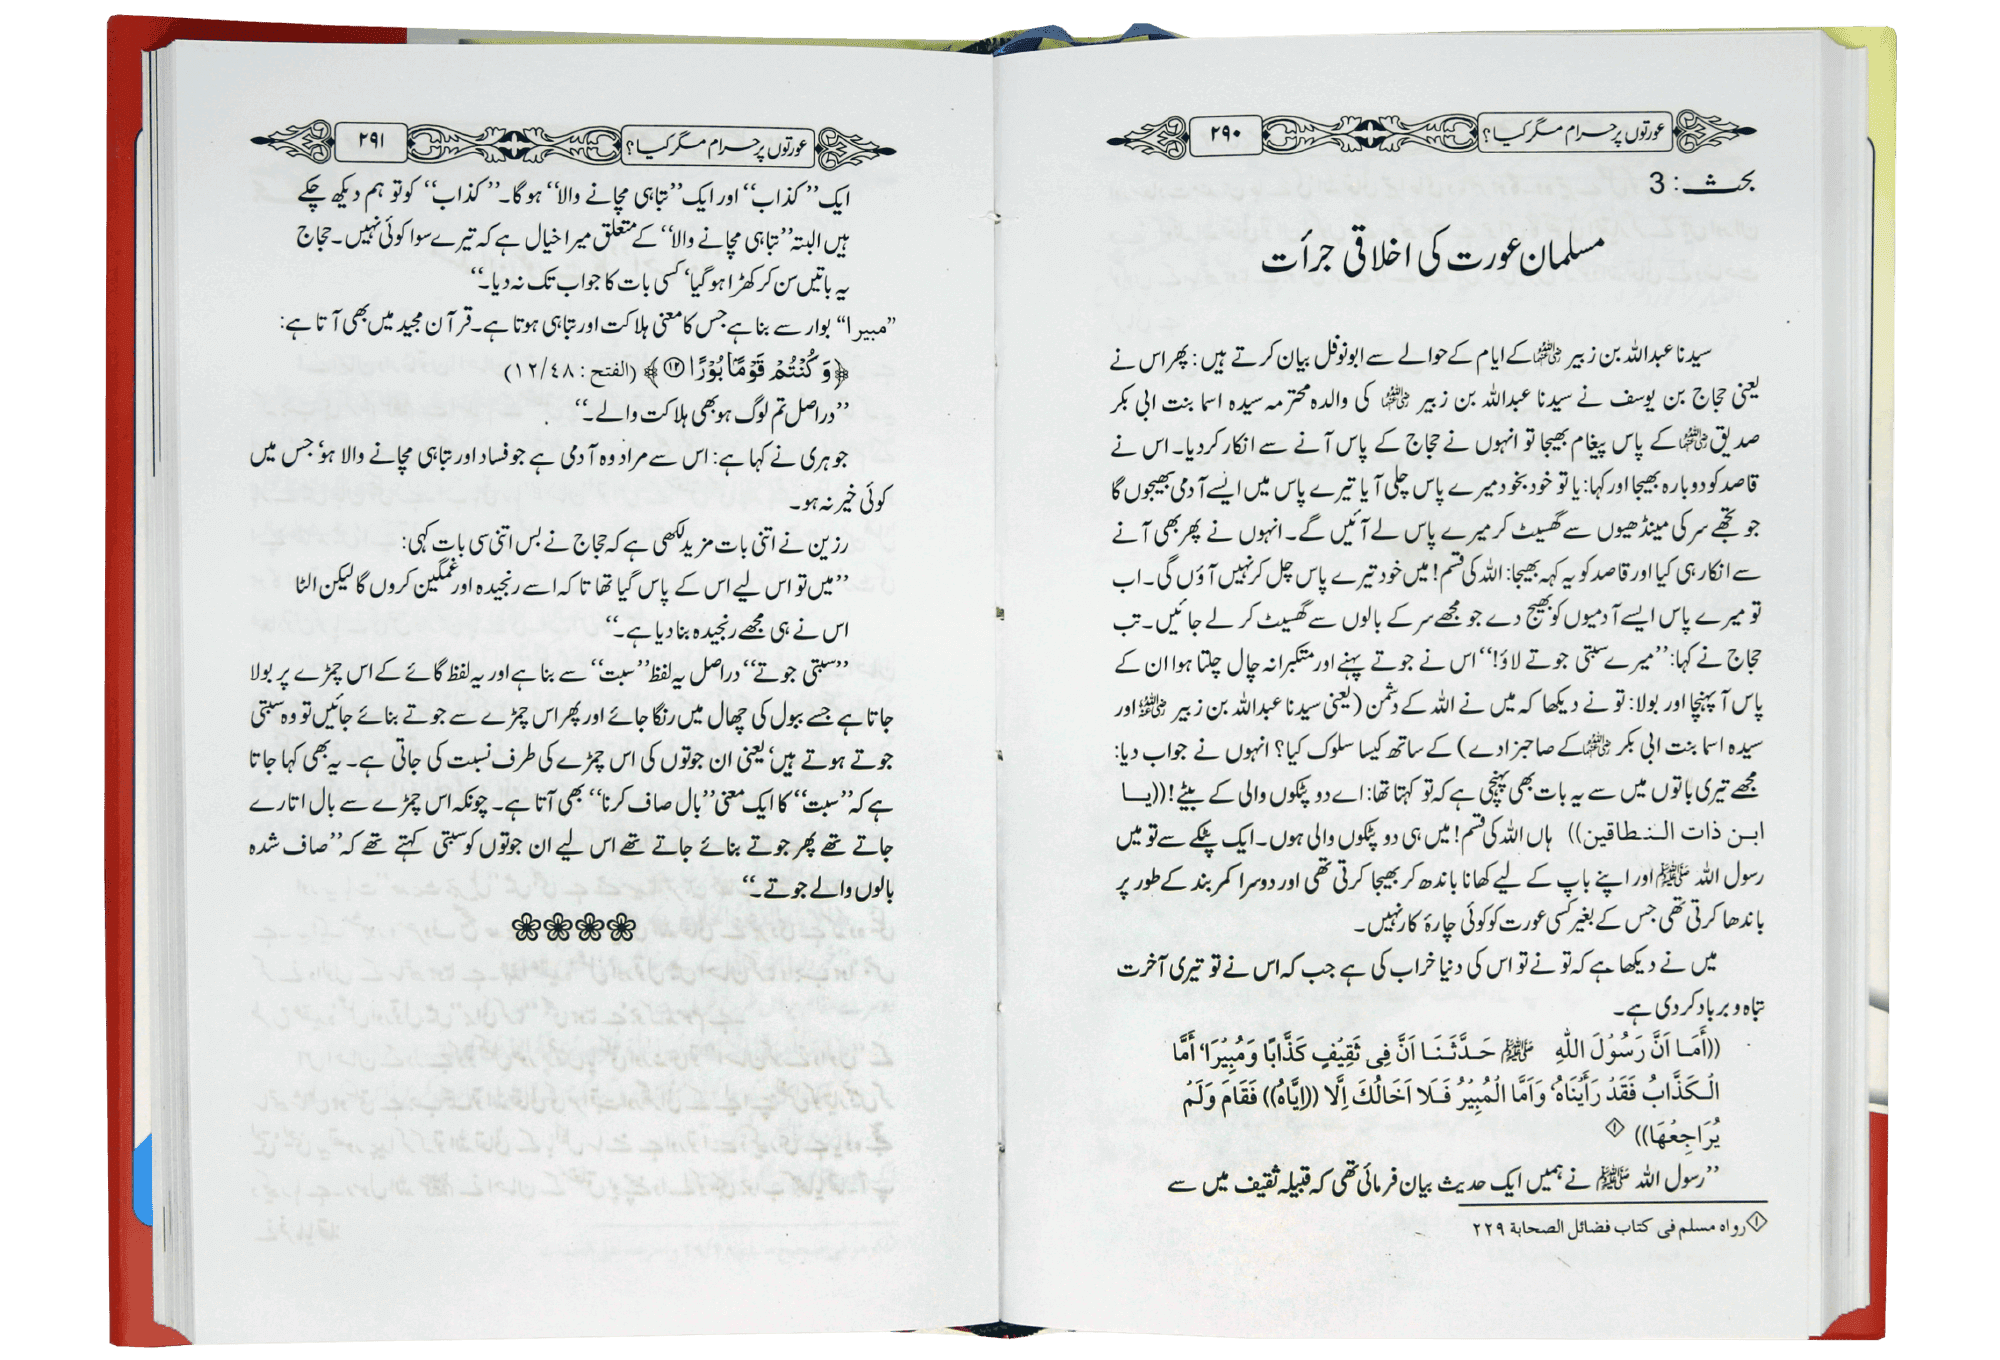 عورتوں پر حرام مگر کیا؟
۲۹۰
بحث : 3
مسلمان عورت کی اخلاقی جرأت
سیدنا عبداللہ بن زبیر رضی اللہ عنہما کے ایام کے حوالے سے ابونوفل بیان کرتے ہیں : پھر اس نے
یعنی حجاج بن یوسف نے سیدنا عبداللہ بن زبیر رضی اللہ عنہما کی والدہ محترمہ سیدہ اسما بنت ابی بکر
صدیق رضی اللہ عنہما کے پاس پیغام بھیجا تو انہوں نے حجاج کے پاس آنے سے انکار کر دیا۔ اس نے
قاصد کو دوبارہ بھیجا اور کہا: یا تو خود بخود میرے پاس چلی آ یا تیرے پاس میں ایسے آدمی بھیجوں گا
جو تجھے سر کی مینڈھیوں سے گھسیٹ کر میرے پاس لے آئیں گے۔ انہوں نے پھر بھی آنے
سے انکار ہی کیا اور قاصد کو یہ کہہ بھیجا: اللہ کی قسم! میں خود تیرے پاس چل کر نہیں آؤں گی۔ اب
تو میرے پاس ایسے آدمیوں کو بھیج دے جو مجھے سر کے بالوں سے گھسیٹ کر لے جائیں۔ تب
حجاج نے کہا: ’’میرے سبتی جوتے لاؤ!‘‘ اس نے جوتے پہنے اور متکبرانہ چال چلتا ہوا ان کے
پاس آ پہنچا اور بولا: تو نے دیکھا کہ میں نے اللہ کے دشمن (یعنی سیدنا عبداللہ بن زبیر رضی اللہ عنہ اور
سیدہ اسما بنت ابی بکر رضی اللہ عنہما کے صاحبزادے) کے ساتھ کیسا سلوک کیا؟ انہوں نے جواب دیا:
مجھے تیری باتوں میں سے یہ بات بھی پہنچی ہے کہ تو کہتا تھا: اے دو پٹکوں والی کے بیٹے! ((یـا
ابـن ذات الـنـطاقین)) ہاں اللہ کی قسم! میں ہی دو پٹکوں والی ہوں۔ ایک پٹکے سے تو میں
رسول اللہ ﷺ اور اپنے باپ کے لیے کھانا باندھ کر بھیجا کرتی تھی اور دوسرا کمر بند کے طور پر
باندھا کرتی تھی جس کے بغیر کسی عورت کو کوئی چارۂ کار نہیں۔
میں نے دیکھا ہے کہ تو نے تو اس کی دنیا خراب کی ہے جب کہ اس نے تو تیری آخرت
تباہ و برباد کر دی ہے۔
((أَمَـا اَنَّ رَسُوْلَ اللّٰهِ ﷺ حَـدَّثَـنَـا اَنَّ فِی ثَقِیْفٍ کَذَّابًا وَمُبِیْرًا، أَمَّا
الْـکَذَّابُ فَقَدْ رَأَیْنَاهُ، وَاَمَّا الْمُبِیْرُ فَـلَا اَخَالُكَ اِلَّا ((اِیَّاهُ)) فَقَامَ وَلَمْ
یُرَاجِعْهَا)) ۱
’’رسول اللہ ﷺ نے ہمیں ایک حدیث بیان فرمائی تھی کہ قبیلہ ثقیف میں سے
۱ رواہ مسلم فی کتاب فضائل الصحابة ۲۲۹
عورتوں پر حرام مگر کیا؟
۲۹۱
ایک ’’کذاب‘‘ اور ایک ’’تباہی مچانے والا‘‘ ہوگا۔ ’’کذاب‘‘ کو تو ہم دیکھ چکے
ہیں البتہ ’’تباہی مچانے والا‘‘ کے متعلق میرا خیال ہے کہ تیرے سوا کوئی نہیں۔ حجاج
یہ باتیں سن کر کھڑا ہو گیا، کسی بات کا جواب تک نہ دیا۔‘‘
’’مبیرا‘‘ بوار سے بنا ہے جس کا معنی ہلاکت اور تباہی ہوتا ہے۔ قرآن مجید میں بھی آتا ہے:
﴿وَ كُنْتُمْ قَوْمًۢا بُوْرًا ۝۱۲﴾ (الفتح : ۴۸/۱۲)
’’دراصل تم لوگ ہو بھی ہلاکت والے۔‘‘
جوہری نے کہا ہے: اس سے مراد وہ آدمی ہے جو فساد اور تباہی مچانے والا ہو، جس میں
کوئی خیر نہ ہو۔
رزین نے اتنی بات مزید لکھی ہے کہ حجاج نے بس اتنی سی بات کہی:
’’میں تو اس لیے اس کے پاس گیا تھا تا کہ اسے رنجیدہ اور غمگین کروں گا لیکن الٹا
اس نے ہی مجھے رنجیدہ بنا دیا ہے۔‘‘
’’سبتی جوتے‘‘ دراصل یہ لفظ ’’سبت‘‘ سے بنا ہے اور یہ لفظ گائے کے اس چمڑے پر بولا
جاتا ہے جسے ببول کی چھال میں رنگا جائے اور پھر اس چمڑے سے جوتے بنائے جائیں تو وہ سبتی
جوتے ہوتے ہیں، یعنی ان جوتوں کی اس چمڑے کی طرف نسبت کی جاتی ہے۔ یہ بھی کہا جاتا
ہے کہ ’’سبت‘‘ کا ایک معنی ’’بال صاف کرنا‘‘ بھی آتا ہے۔ چونکہ اس چمڑے سے بال اتارے
جاتے تھے پھر جوتے بنائے جاتے تھے اس لیے ان جوتوں کو سبتی کہتے تھے کہ ’’صاف شدہ
بالوں والے جوتے۔‘‘